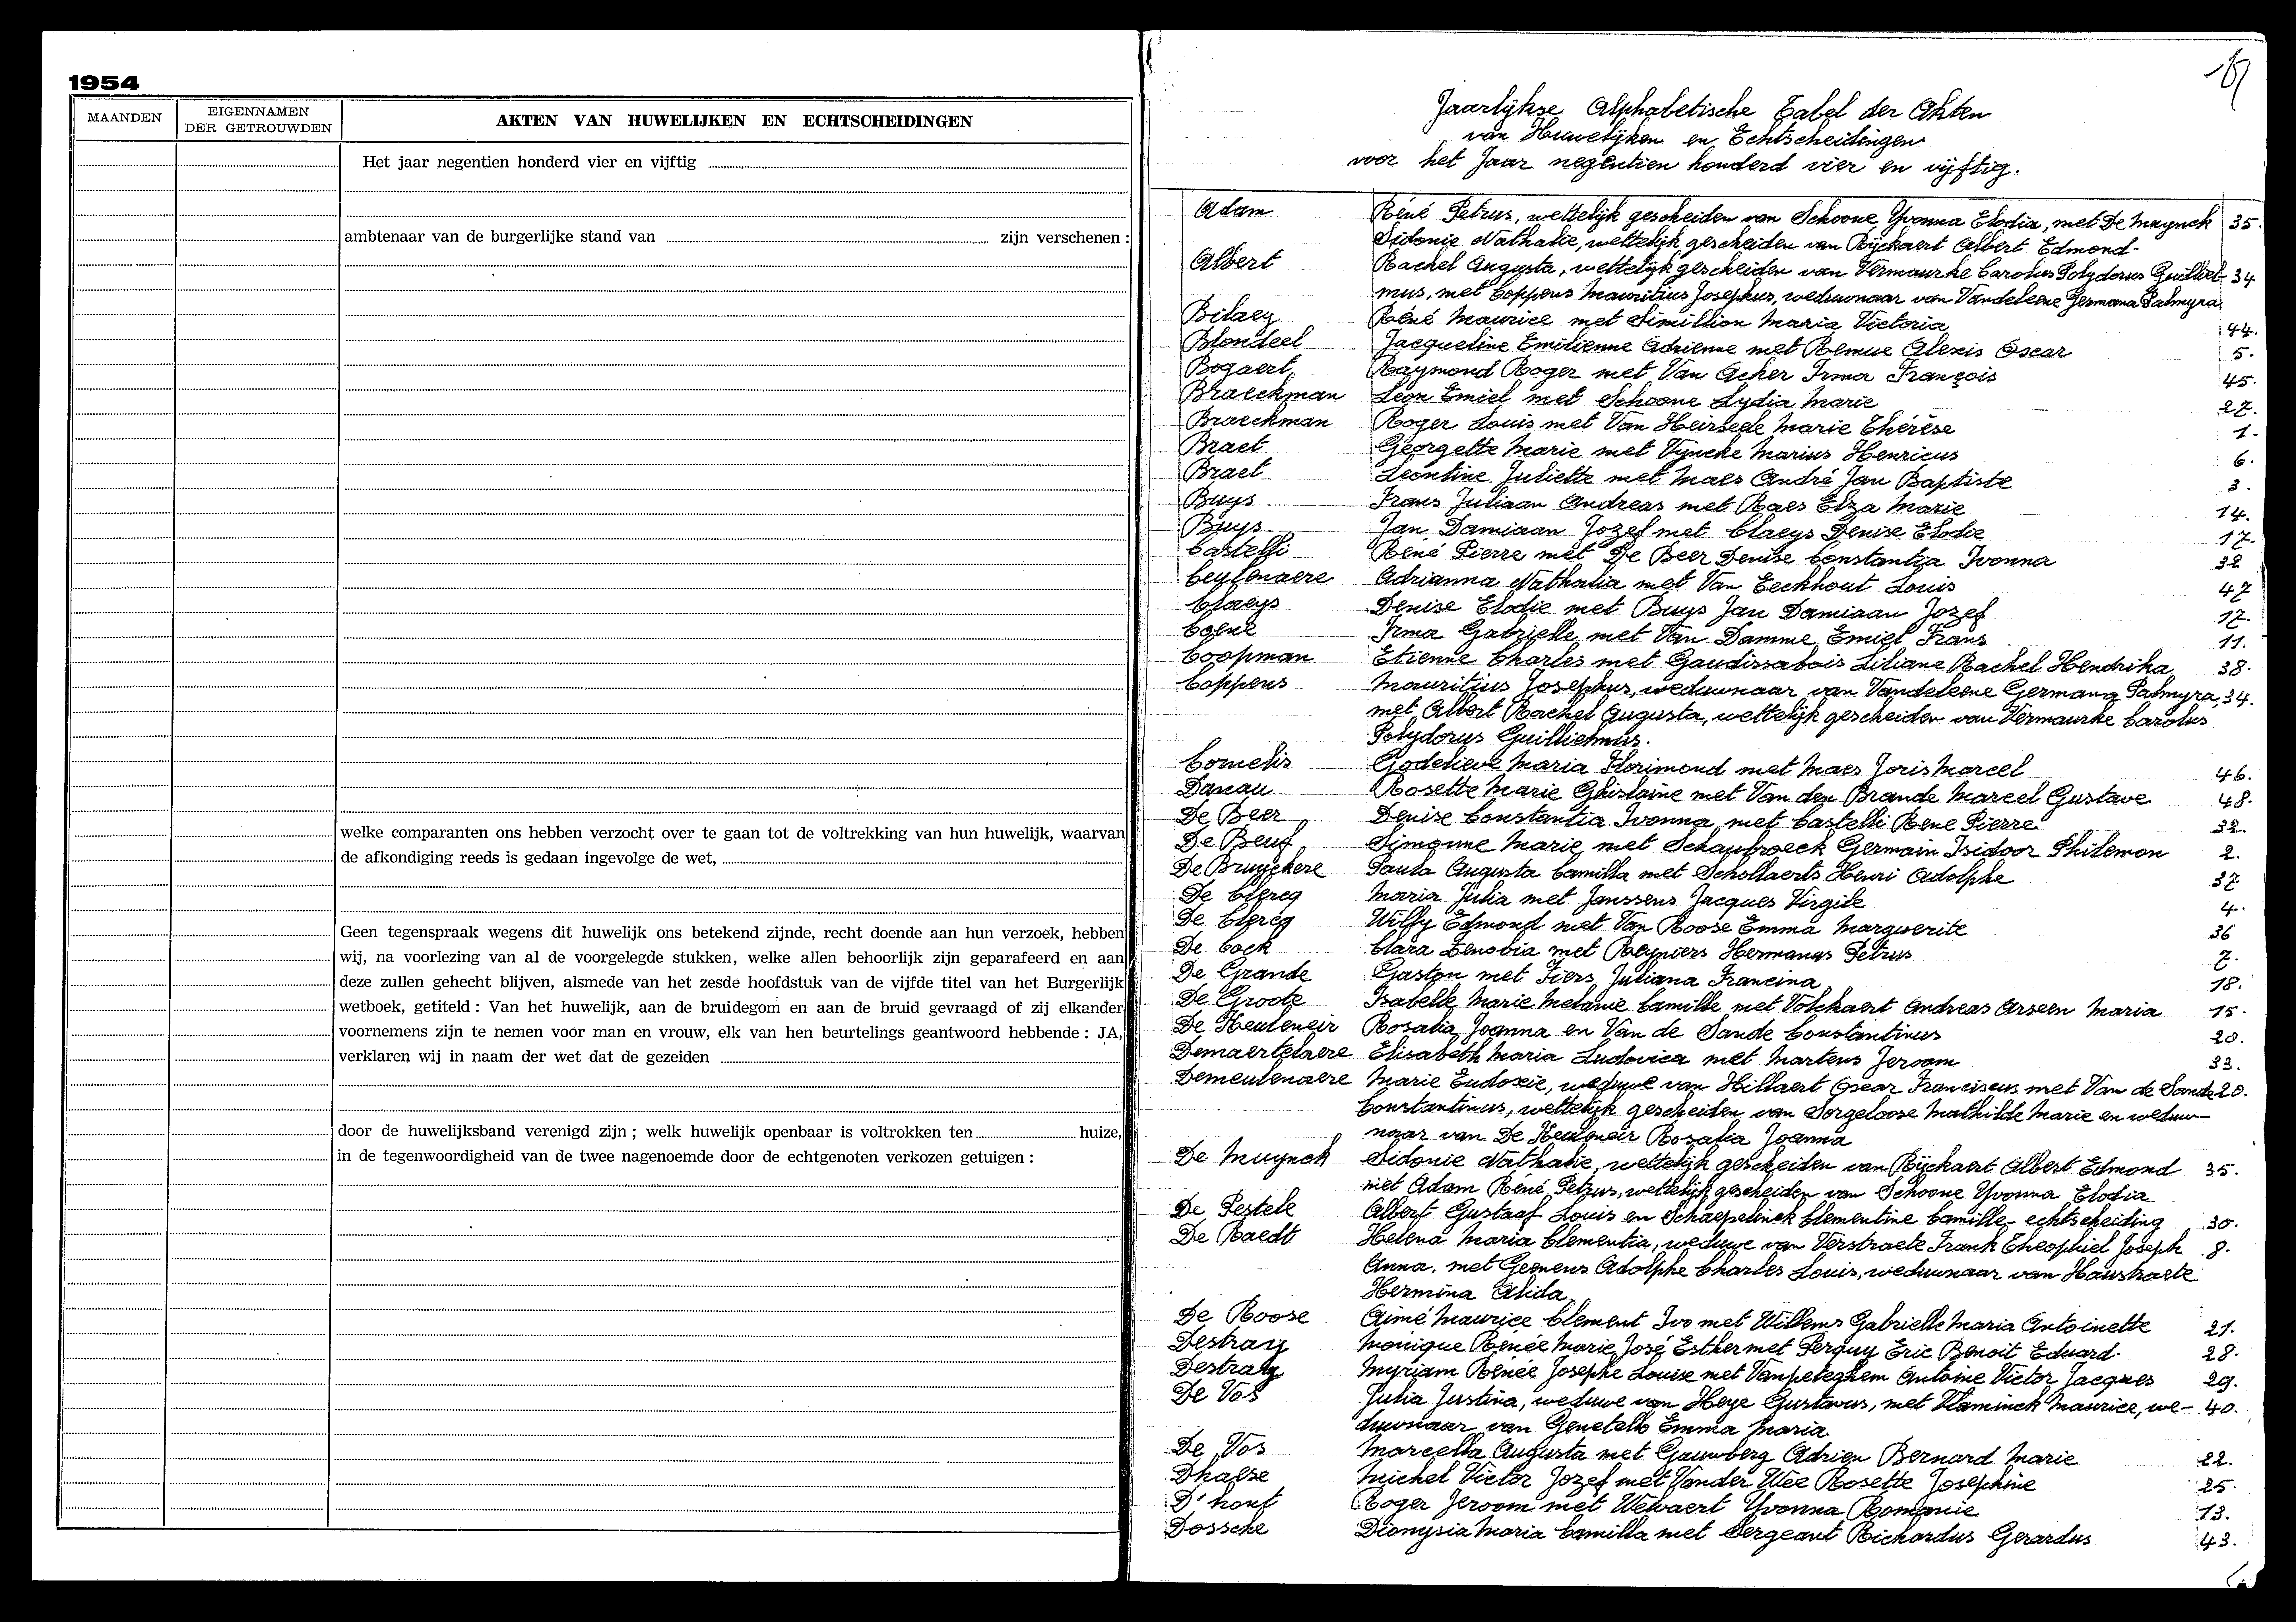 1954
MAANDEN
EIGENNAMEN
DER GETROUWDEN
AKTEN VAN HUWELIJKEN EN ECHTSCHEIDINGEN
Het jaar negentien honderd vier en vijftig
ambtenaar van de burgerlijke stand van zijn verschenen :
welke comparanten ons hebben verzocht over te gaan tot de voltrekking van hun huwelijk, waarvan
de afkondiging reeds is gedaan ingevolge de wet,
Geen tegenspraak wegens dit huwelijk ons betekend zijnde, recht doende aan hun verzoek, hebben
wij, na voorlezing van al de voorgelegde stukken, welke allen behoorlijk zijn geparafeerd en aan
deze zullen gehecht blijven, alsmede van het zesde hoofdstuk van de vijfde titel van het Burgerlijk
wetboek, getiteld : Van het huwelijk, aan de bruidegom en aan de bruid gevraagd of zij elkander
voornemens zijn te nemen voor man en vrouw, elk van hen beurtelings geantwoord hebbende : JA,
verklaren wij in naam der wet dat de gezeiden
door de huwelijksband verenigd zijn ; welk huwelijk openbaar is voltrokken ten huize,
in de tegenwoordigheid van de twee nagenoemde door de echtgenoten verkozen getuigen :
Jaarlijkse Alphabetische Tabel der Akten
van Huwelijken en Echtscheidingen
voor het Jaar negentien honderd vier en vijftig.
Adam René Petrus, wettelijk gescheiden van Schoone Yvonna Elodia, met De Muynck 35.
Sidonie Nathalie, wettelijk gescheiden van Rijckaert Albert Edmond-
Albert Rachel Augusta, wettelijk gescheiden van Vermaurke Carolus Polydorus Guilliel- 34
mus, met Coppens Mauritius Josephus, weduwnaar van Vandeleene Germana Palmyra
Bilaey René Maurice met Simillion Maria Victoria 44.
Blondeel Jacqueline Emilienne Adrienne met Remue Alexis Oscar 5.
Bogaert Raymond Roger met Van Acker Irma François 45.
Braeckman Léon Emiel met Schoone Lydia Marie 27.
Braeckman Roger Louis met Van Heirseele Marie Thérèse 1.
Braet Georgette Marie met Vyncke Marius Henricus 6.
Braet Leontine Juliette met Maes André Jan Baptiste 3.
Buys Frans Juliaan Andreas met Raes Elza Marie 14.
Buys Jan Damiaan Jozef met Claeys Denise Elodie 17.
Castelli René Pierre met De Beer Denise Constantia Ivonna 32
Ceulenaere Adrianna Nathalia met Van Eeckhout Louis 47
Claeys Denise Elodie met Buys Jan Damiaan Jozef 17.
Coene Irma Gabrielle met Van Damme Emiel Frans 11.
Coopman Etienne Charles met Gaudissabois Liliane Rachel Hendrika 38.
Coppens Mauritius Josephus, weduwnaar van Vandeleene Germana Palmyra, 34.
met Albert Rachel Augusta, wettelijk gescheiden van Vermaurke Carolus
Polydorus Guillielmus.
Cornelis Godelieve Maria Florimond met Maes Joris Marcel 46.
Danau Rosette Marie Ghislaine met Van den Brande Marcel Gustave 48.
De Beer Denise Constantia Ivonna met Castelli Rene Pierre 32.
De Beuf Simonne Marie met Schaubroeck Germain Isidoor Philemon 2.
De Bruyckere Paula Augusta Camilla met Schollaerts Henri Adolphe 37
De Clercq Maria Julia met Janssens Jacques Virgile 4.
De Clercq Willy Edmond met Van Roose Emma Marguerite 36
De Cock Clara Zenobia met Reyniers Hermanus Petrus 7.
De Grande Gaston met Fiers Juliana Francina 18.
De Groote Isabelle Marie Melanie Camille met Volckaert Andreas Arseen Maria 15.
De Keuleneir Rosalia Joanna en Van de Sande Constantinus 20.
Demaertelaere Elisabeth Maria Ludovica met Martens Jeroom 33.
Demeulenaere Marie Eudoxie, weduwe van Hillaert Oscar Franciscus met Van de Sande 20.
Constantinus, wettelijk gescheiden van Sorgeloose Mathilde Marie en weduw-
naar van De Keuleneir Rosalia Joanna
De Muynck Sidonie Nathalie, wettelijk gescheiden van Rijckaert Albert Edmond 35.
met Adam René Petrus, wettelijk gescheiden van Schoone Yvonna Elodia
De Pestele Albert Gustaaf Louis en Schaepelinck Clementine Camille - echtscheiding 30.
De Raedt Helena Maria Clementia, weduwe van Verstraete Frank Theophiel Joseph 8.
Anna, met Geenens Adolphe Charles Louis, weduwnaar van Haustraete
Hermina Alida
De Roose Aimé Maurice Clement Ivo met Willems Gabrielle Maria Antoinette 21.
Destray Monique Renée Marie José Esther met Perquy Eric Benoit Eduard. 28.
Destray Myriam Renée Josephe Louise met Vanpeteghem Antoine Victor Jacques 29.
De Vos Julia Justina, weduwe van Heye Gustavus, met Vlaminck Maurice, we- 40.
duwnaar van Genetello Emma Maria
De Vos Marcella Augusta met Gauwberg Adrien Bernard Marie 22.
Dhaese Michel Victor Jozef met Vander Wee Rosette Josephine 25.
D'hont Roger Jeroom met Welvaert Yvonna Romanie 13.
Dossche Dionysia Maria Camilla met Sergeant Richardus Gerardus 43.